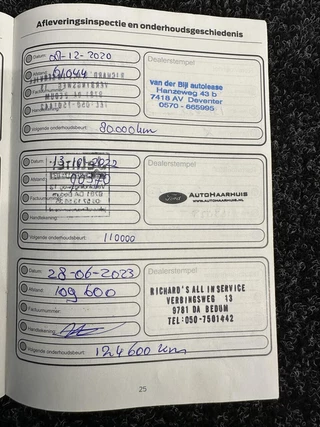 Afleveringsinspectie en onderhoudsgeschiedenis
Datum: 08-12-2020
Dealerstempel
Afstand: 61044
van der Bijl autolease
Hanzeweg 43 b
7418 AV Deventer
0570 - 665995
Volgende onderhoudsbeurt: 80.000km
Datum: 13-10-2022
Dealerstempel
Afstand:
Factuurnummer:
Handtekening:
Ford AUTOHAARHUIS
WWW.AUTOHAARHUIS.NL
Volgende onderhoudsbeurt: 110000
Datum: 28-06-2023
Dealerstempel
Afstand: 109 600
Factuurnummer:
Handtekening:
RICHARD'S ALL IN SERVICE
VERBINGSWEG 13
9781 DA BEDUM
TEL:050-7501442
Volgende onderhoudsbeurt: 124600 km
25